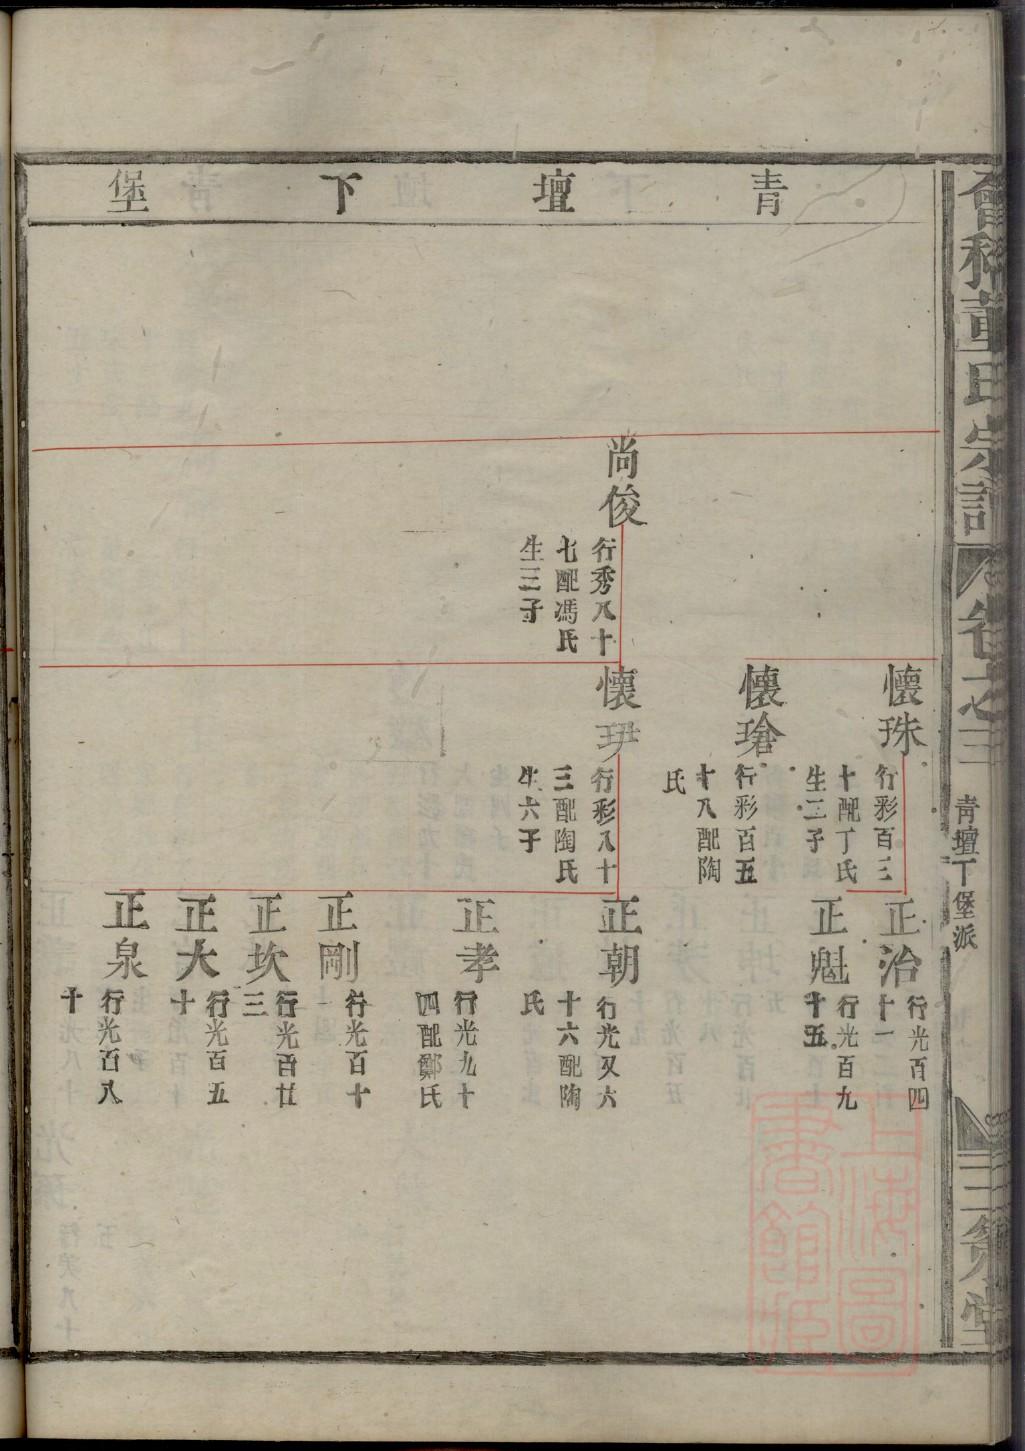 青壇下堡
會稽董氏宗譜
卷之三
青壇下堡派
三策堂
尚俊
行秀八十
七配馮氏
生三子
懷珠
行彩百三
十配丁氏
生二子
懷瑲
行彩百五
十八配陶
氏
懷玬
行彩八十
三配陶氏
生六子
正治
行光百四
十一
正魁
行光百九
十五
正朝
行光又六
十六配陶
氏
正孝
行光九十
四配鄭氏
正剛
行光百十
一
正坎
行光百廿
三
正大
行光百五
十
正泉
行光百八
十
上海圖
書館藏